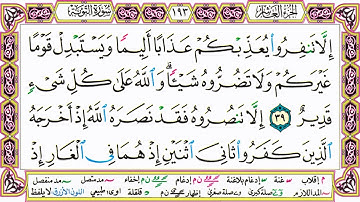 الجزء العاشر ١٩٣ سورة التوبة
إِلَّا تَنفِرُوا يُعَذِّبْكُمْ عَذَابًا أَلِيمًا وَيَسْتَبْدِلْ قَوْمًا
غَيْرَكُمْ وَلَا تَضُرُّوهُ شَيْئًا وَاللَّهُ عَلَى كُلِّ شَيْءٍ
قَدِيرٌ ٣٩ إِلَّا تَنصُرُوهُ فَقَدْ نَصَرَهُ اللَّهُ إِذْ أَخْرَجَهُ
الَّذِينَ كَفَرُوا ثَانِيَ اثْنَيْنِ إِذْ هُمَا فِي الْغَارِ إِذْ